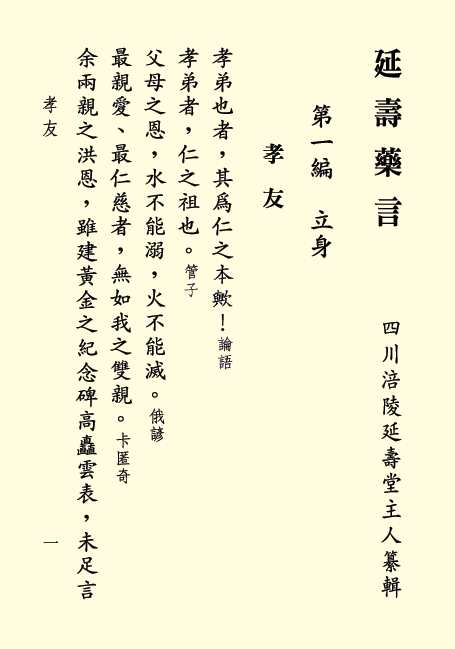 延壽藥言
四川涪陵延壽堂主人纂輯
第一編　立身
孝友
孝弟也者，其為仁之本歟！論語
孝弟者，仁之祖也。管子
父母之恩，水不能溺，火不能滅。俄諺
最親愛、最仁慈者，無如我之雙親。卡匿奇
余兩親之洪恩，雖建黃金之紀念碑高矗雲表，未足言
孝友
一